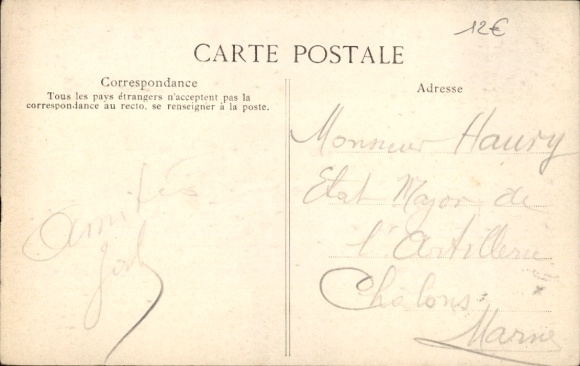 12€
CARTE POSTALE
Correspondance
Tous les pays étrangers n'acceptent pas la
correspondance au recto, se renseigner à la poste.
Amitiés
Adresse
Monsieur Haury
Etat Major de
l'Artillerie
Châlons
Marne